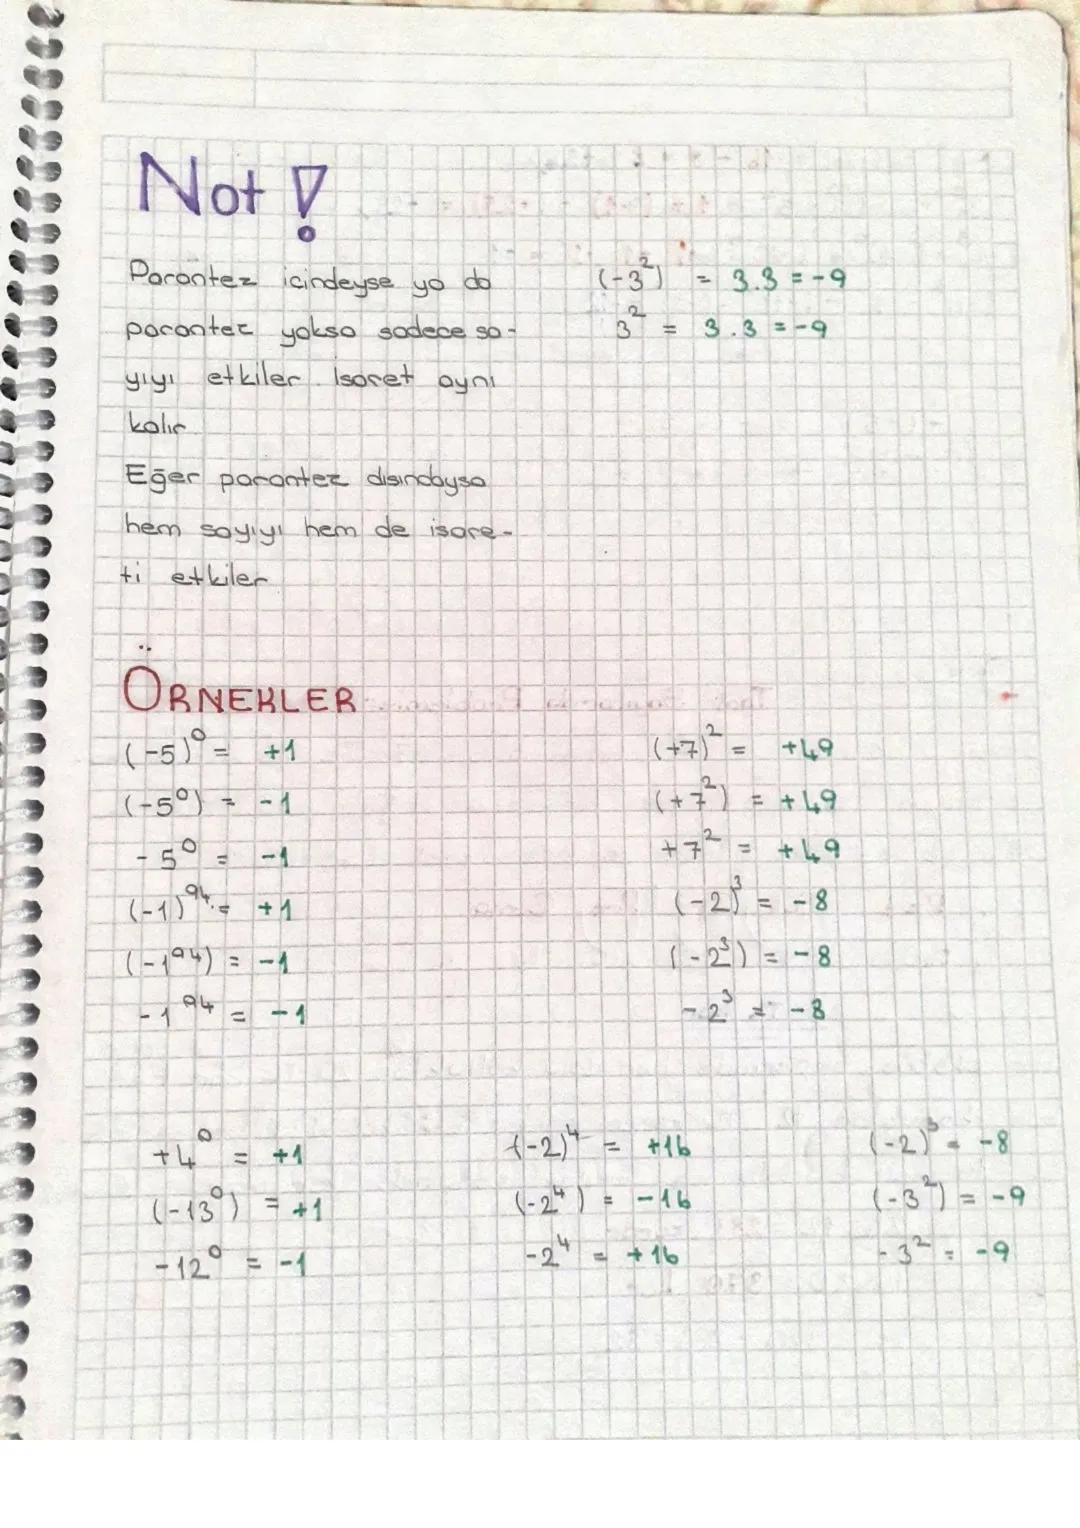 Not !
Parantez icindeyse ya da
parantez yoksa sadece sa-
yıyı etkiler. Isaret aynı
kalır
Eğer parantez disindaysa
hem sayıyı hem de isare-
ti etkiler
(-3²) = 3.3 = -9
3² = 3.3 = -9
ÖRNEKLER
(-5)⁰ = +1
(-5⁰) = -1
-5⁰ = -1
(-1)⁹⁴ = +1
(-1⁹⁴) = -1
-1⁹⁴ = -1
(+7)² = +49
(+7²) = +49
+7² = +49
(-2)³ = -8
(-2³) = -8
-2³ = -8
+4⁰ = +1
(-13⁰) = +1
-12⁰ = -1
(-2)⁴ = +16
(-2⁴) = -16
-2⁴ = +16
(-2)³ = -8
(-3²) = -9
-3² = -9